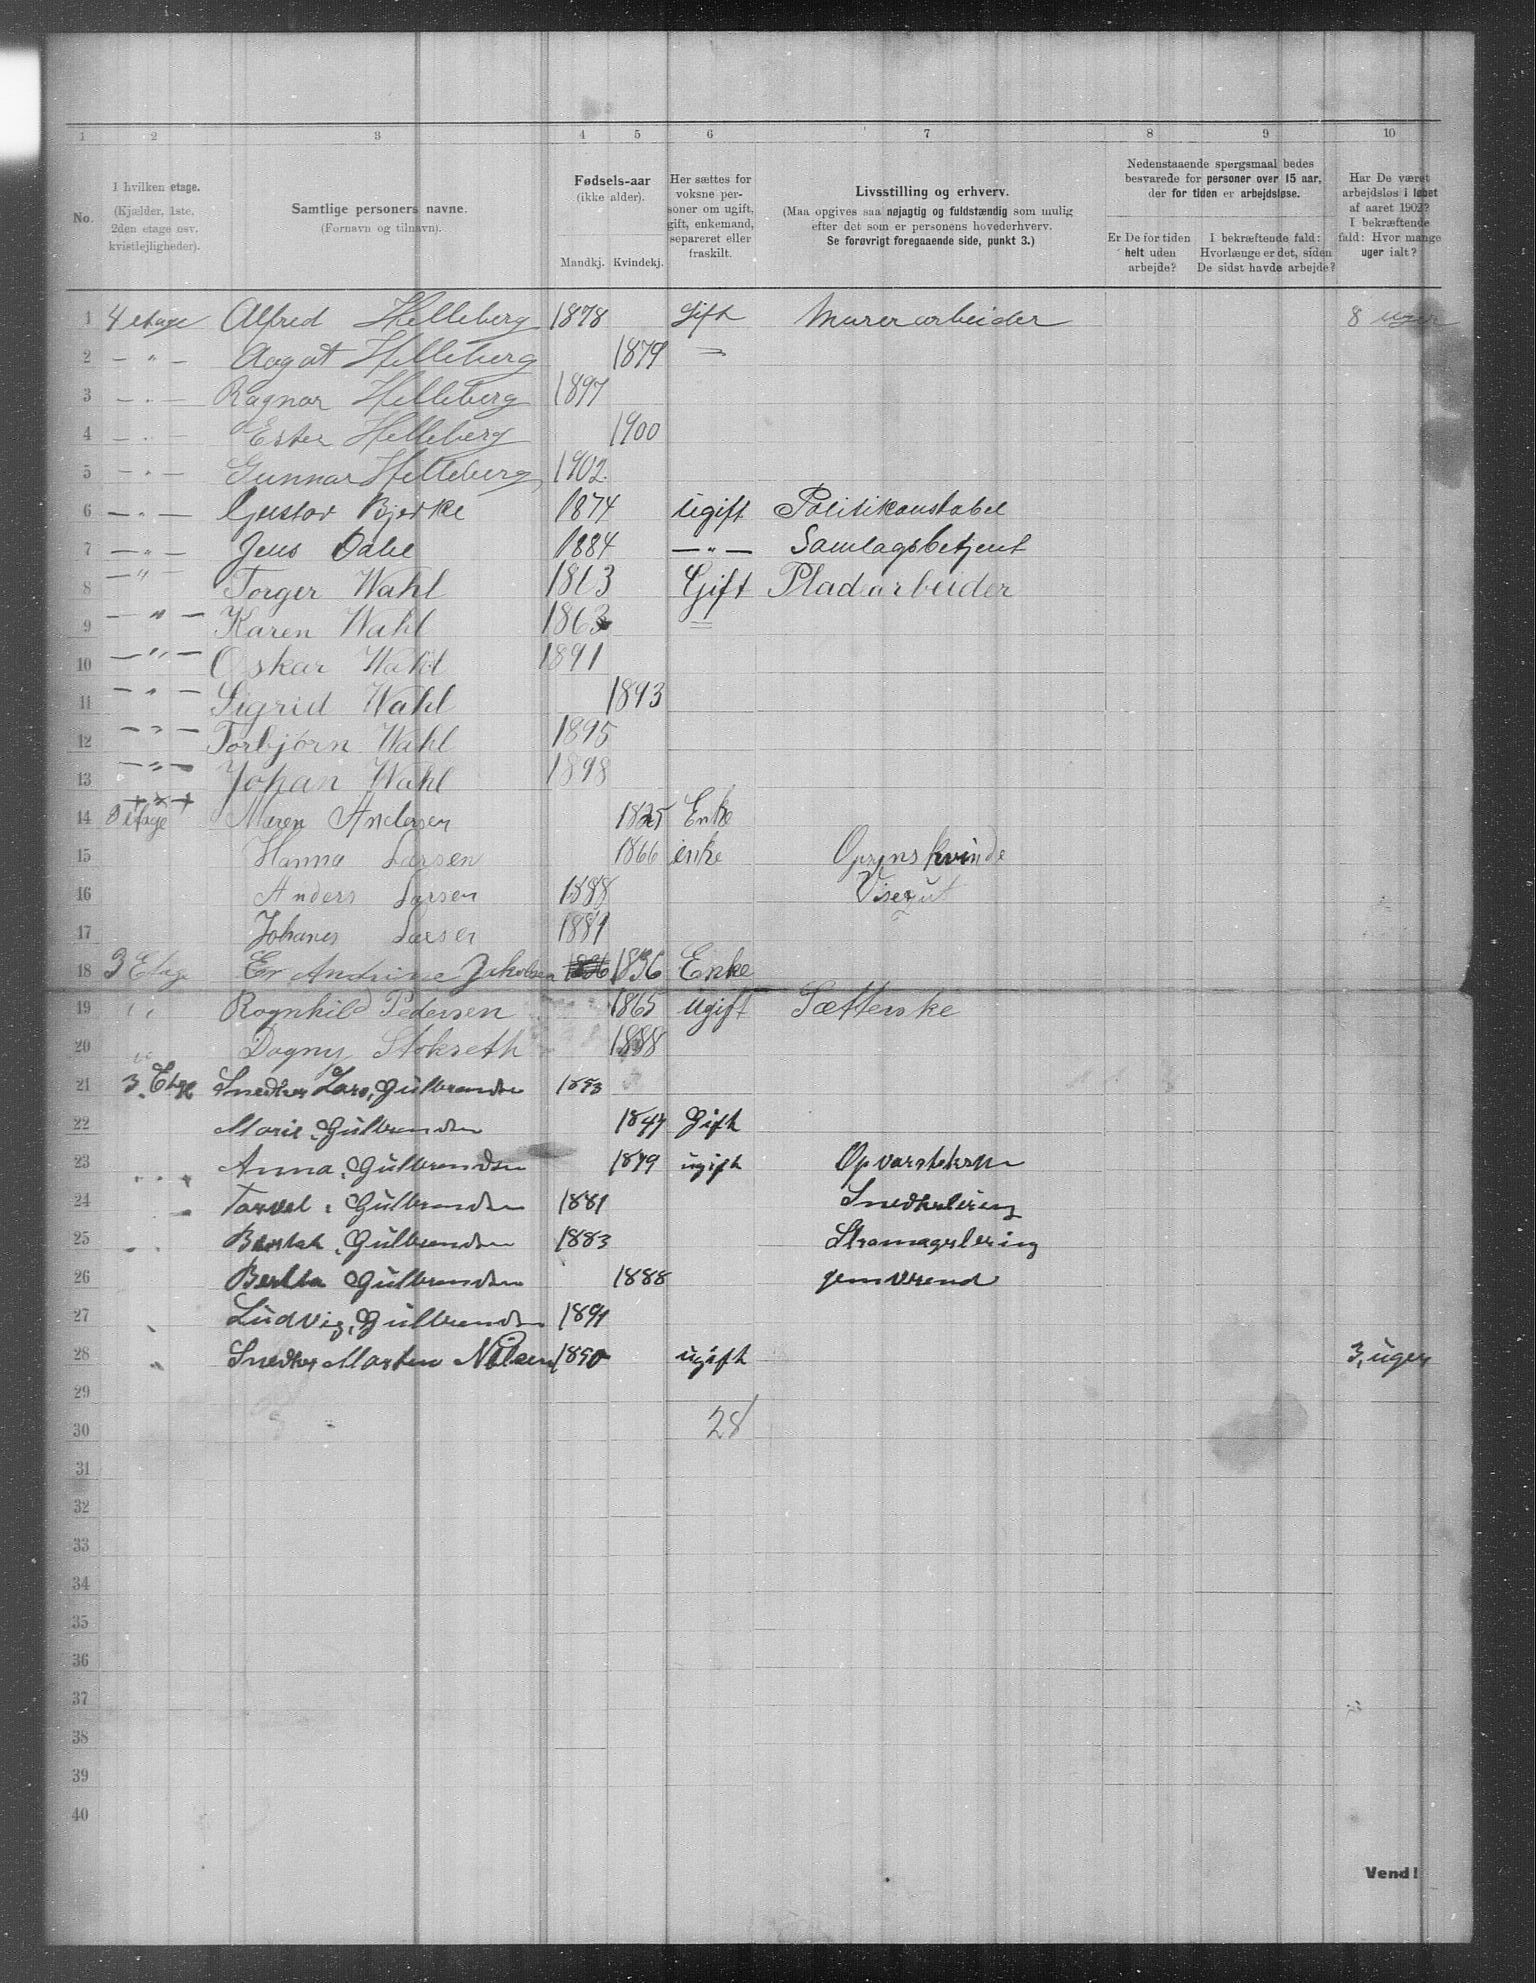 1 2 3 4 5 6 7 8 9 10
No.
I hvilken etage.
(Kjælder, 1ste,
2den etage osv.
kvistlejligheder).
Samtlige personers navne.
(Fornavn og tilnavn).
Fødsels-aar
(ikke alder).
Mandkj. Kvindekj.
Her sættes for
voksne per-
soner om ugift,
gift, enkemand,
separeret eller
fraskilt.
Livsstilling og erhverv.
(Maa opgives saa nøjagtig og fuldstændig som mulig
efter det som er personens hovederhverv.
Se forøvrigt foregaaende side, punkt 3.)
Nedenstaaende spørgsmaal bedes
besvarede for personer over 15 aar,
der for tiden er arbejdsløse.
Er De for tiden
helt uden
arbejde?
I bekræftende fald:
Hvorlænge er det, siden
De sidst havde arbejde?
Har De været
arbejdsløs i løbet
af aaret 1902?
I bekræftende
fald: Hvor mange
uger ialt?
1 4 etage Alfred Helleberg 1878 Gift Murerarbeider 8 uger
2 — " — Aagot Helleberg 1879 =
3 — " — Ragnar Helleberg 1897
4 — " — Ester Helleberg 1900
5 — " — Gunnar Helleberg 1902
6 — " — Gustav Bjerke 1874 ugift Politikonstabel
7 — " — Jens Dahl 1884 — " — Samlagsbetjent
8 — " Torger Wahl 1863 Gift Pladsarbeider
9 — " — Karen Wahl 1863 =
10 — " — Oskar Wahl 1891
11 — " — Sigrid Wahl 1893
12 — " — Torbjørn Wahl 1895
13 — " — Johan Wahl 1898
14 3 etage Maren Andersen 1825 Enke
15 Hanna Larsen 1866 enke
16 Anders Larsen 1888 Visergut
17 Johanes Larsen 1889
18 3 Etage Andrine Jakobsen 1836 Enke
19 " Ragnhild Pedersen 1865 ugift Sætterske
20 " Dagny Stokseth 1888
21 3. Etage Snedker Lars, Gulbrandsen 1853
22 Marie, Gulbrandsen Gift
23 Anna, Gulbrandsen 1879 ugift
24 Gulbrandsen 1881 Snedkerlering
25 Gulbrandsen 1883
26 Bertha Gulbrandsen 1888
27 Ludvig, Gulbrandsen 1891
28 Snedker Morten Nilsen 1850 ugift 3, uger
29
30 28
31
32
33
34
35
36
37
38
39
40
Vend!